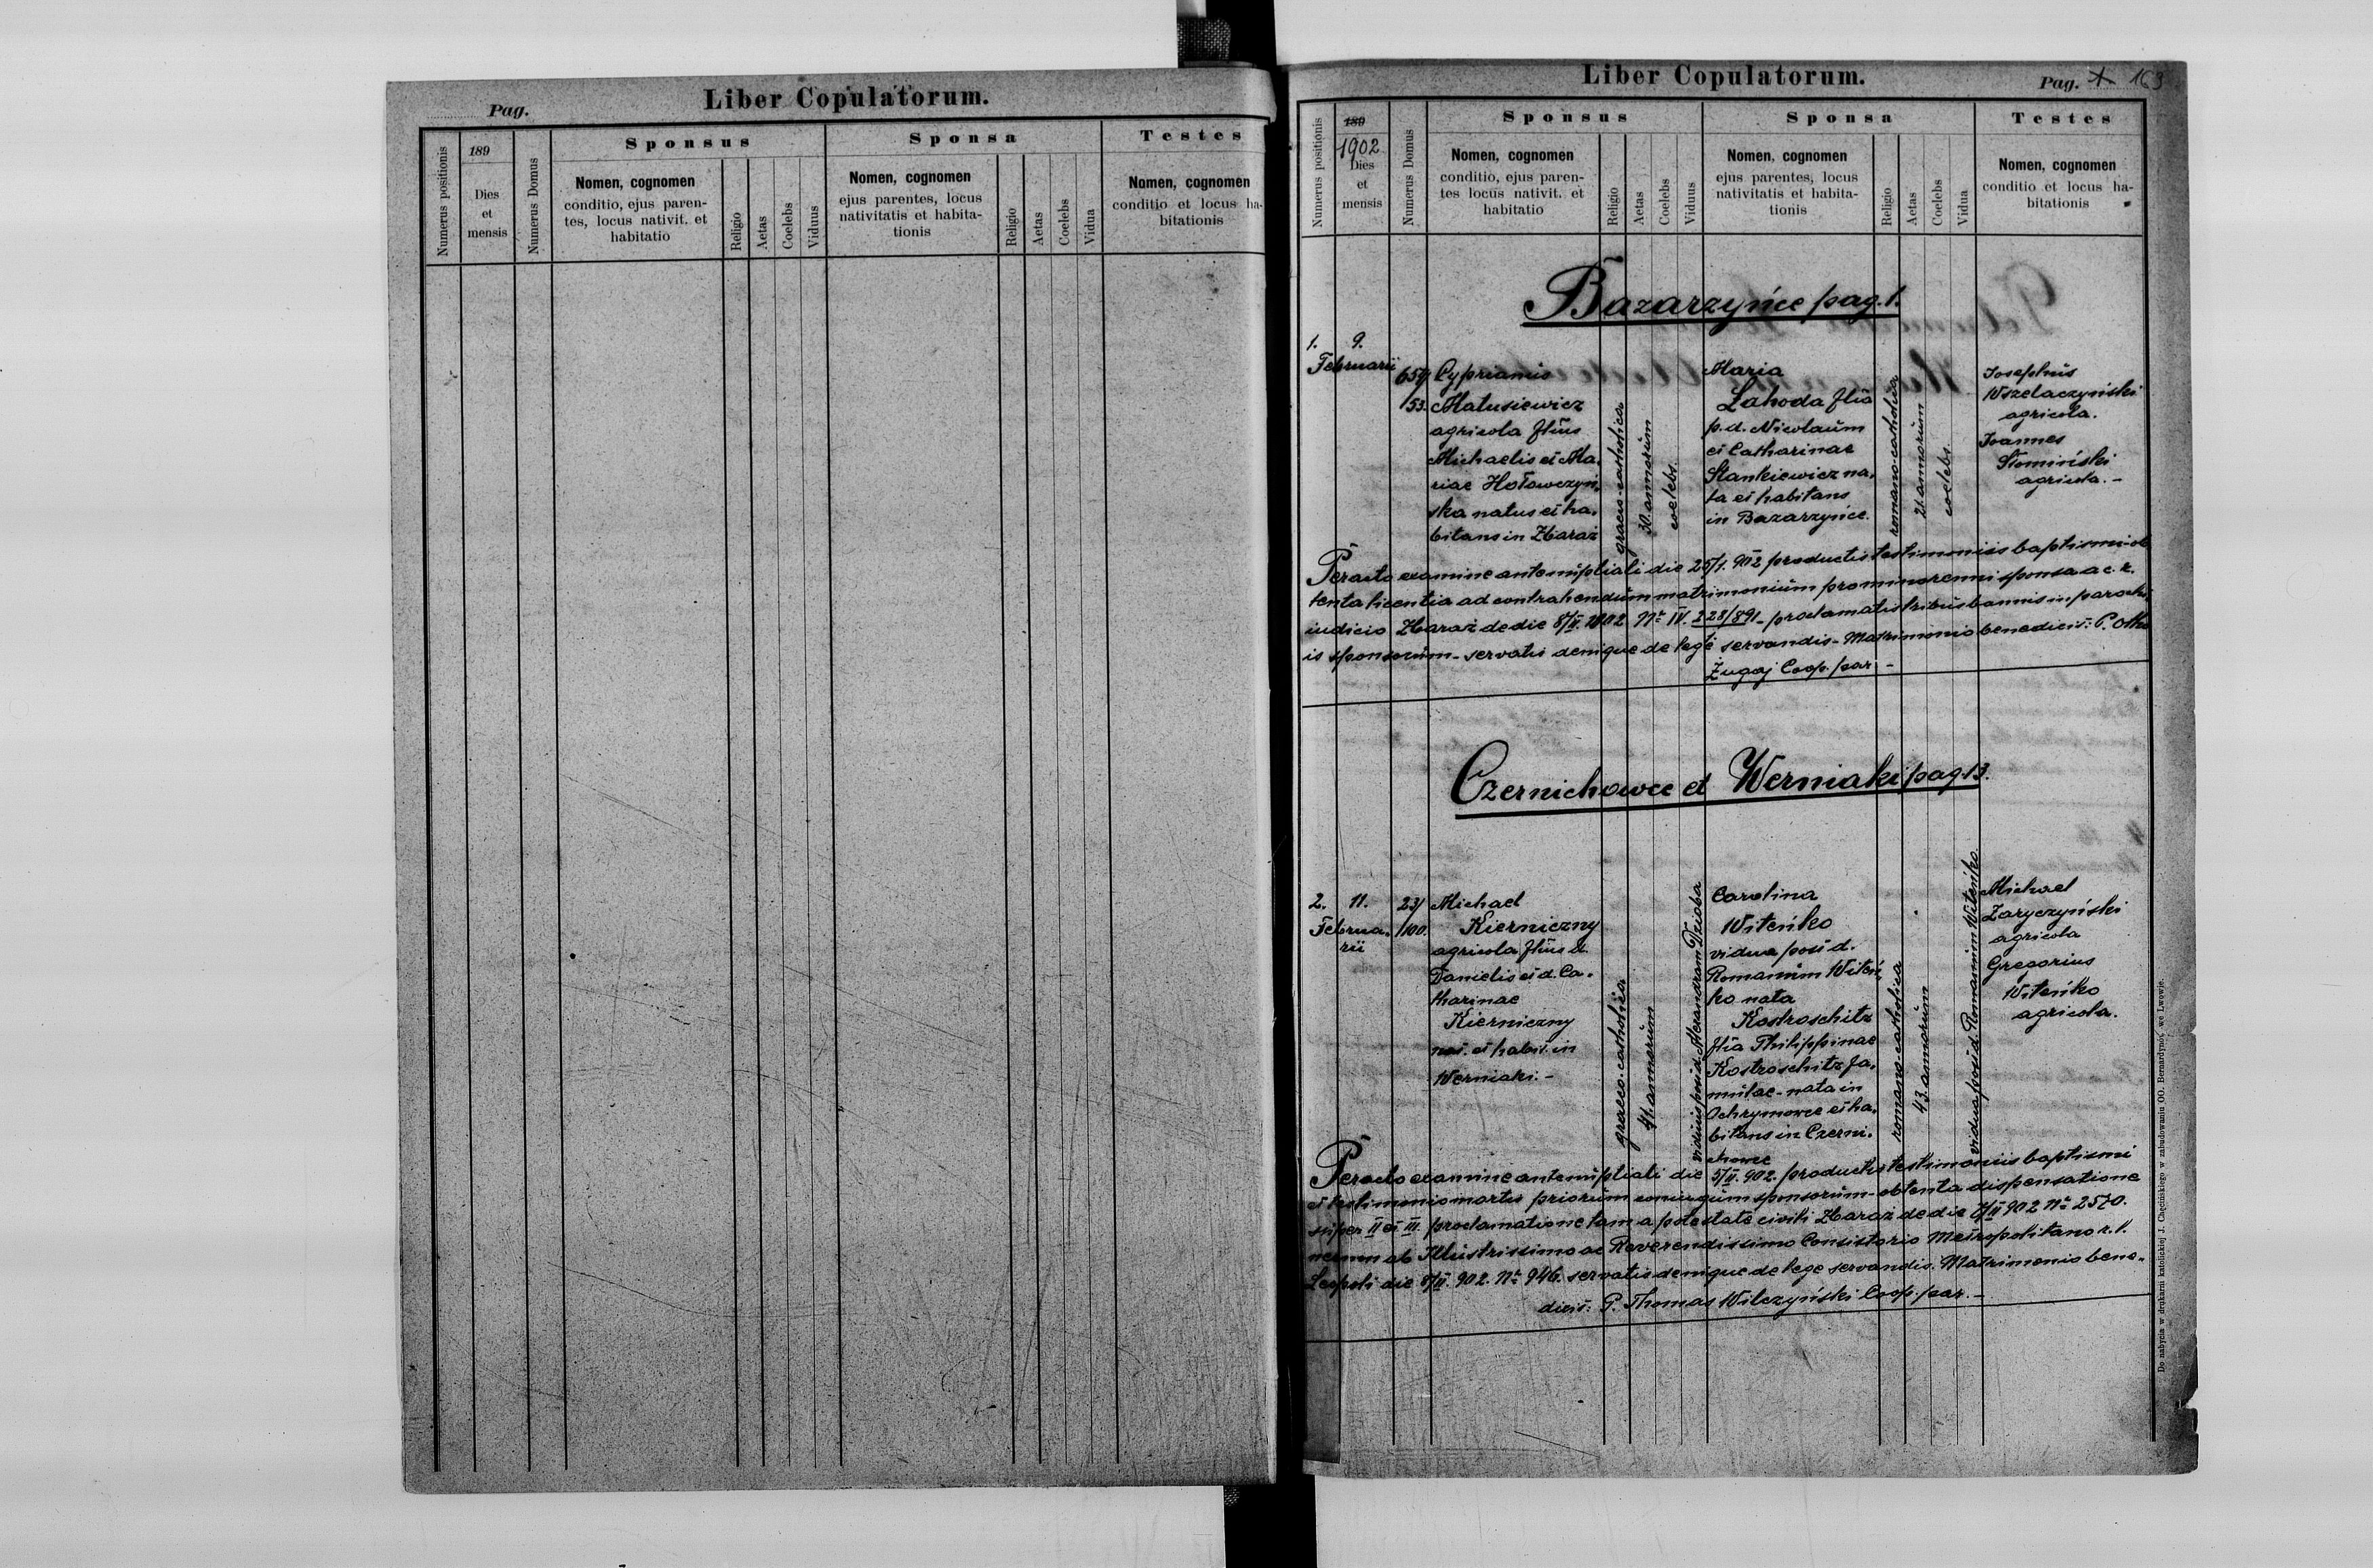 Pag.
Liber Copulatorum.
Numerus positionis
189
Dies
et
mensis
Numerus Domus
Sponsus
Nomen, cognomen
conditio, ejus paren-
tes, locus nativit. et
habitatio
Religio
Aetas
Coelebs
Viduus
Sponsa
Nomen, cognomen
ejus parentes, locus
nativitatis et habita-
tionis
Religio
Aetas
Coelebs
Vidua
Testes
Nomen, cognomen
conditio et locus ha-
bitationis
Liber Copulatorum.
Pag. 1 163
Numerus positionis
189
1902
Dies
et
mensis
Numerus Domus
Sponsus
Nomen, cognomen
conditio, ejus paren-
tes, locus nativit. et
habitatio
Religio
Aetas
Coelebs
Viduus
Sponsa
Nomen, cognomen
ejus parentes, locus
nativitatis et habita-
tionis
Religio
Aetas
Coelebs
Vidua
Testes
Nomen, cognomen
conditio et locus ha-
bitationis
Bazarzyńce pag. 1.
1. 9.
Februarii
659/
/53.
Cyprianus
Matusiewicz
agricola filius
Michaelis et Ma-
riae Hołowczyń-
ska natus et ha-
bitans in Zbaraż
graeco-catholica
30. annorum
coelebs.
Maria
Lahoda filia
p. d. Nicolaum
et Catharinae
Stankiewicz na-
ta et habitans
in Bazarzyńce.
romano-catholica
21. annorum
coelebs.
Josephus
Wszelaczyński
agricola.
Joannes
Słomiński
agricola. -
Peracto examine antenuptiali die 25/1. 902 productis testimoniis baptismi-ob
tenta licentia ad contrahendum matrimonium pro minorenni sponsa a c. k.
iudicio Zbaraż de die 8/II. 1902 Nr IV. 228/891 - proclamatis tribus bannis in parochi
is sponsorum - servatis denique de lege servandis - Matrimonio benedicit: P. Otto
Żugaj Coop. par. -
Czernichowce et Werniaki pag. 13.
2. 11.
Februa-
rii
23/
/100.
Michael
Kierniczny
agricola filius d.
Danielis et d. Ca-
tharinae
Kierniczny
nat. et habit. in
Werniaki. -
graeco-catholica
41. annorum
viduus post d. Alexandram Dzioba
Carolina
Witeńko
vidua post d.
Romanum Witeń-
ko nata
Kostroschitz
filia Philippinae
Kostroschitz fa-
mulae - nata in
Ochrymowce et ha-
bitans in Czerni-
chowce
romano-catholica
43. annorum
vidua post d. Romanum Witeńko.
Michael
Zaryczyński
agricola
Gregorius
Witeńko
agricola.
Peracto examine antenuptiali die 5/II. 902. productis testimoniis baptismi
et testimonio mortis priorum coniugum sponsorum - obtenta dispensatione
super II et III. proclamatione tam a potestate civili Zbaraż de die 8/II 902 Nr 2570.
necnon ab Illustrissimo ac Reverendissimo Consistorio Metropolitano r. l.
Leopoli die 8/II. 902. Nr 946. servatis denique de lege servandis. Matrimonio bene-
dicit: P. Thomas Wilczyński Coop. par. -
Do nabycia w drukarni katolickiej J. Chęcińskiego w zabudowaniu OO. Bernardynów we Lwowie.